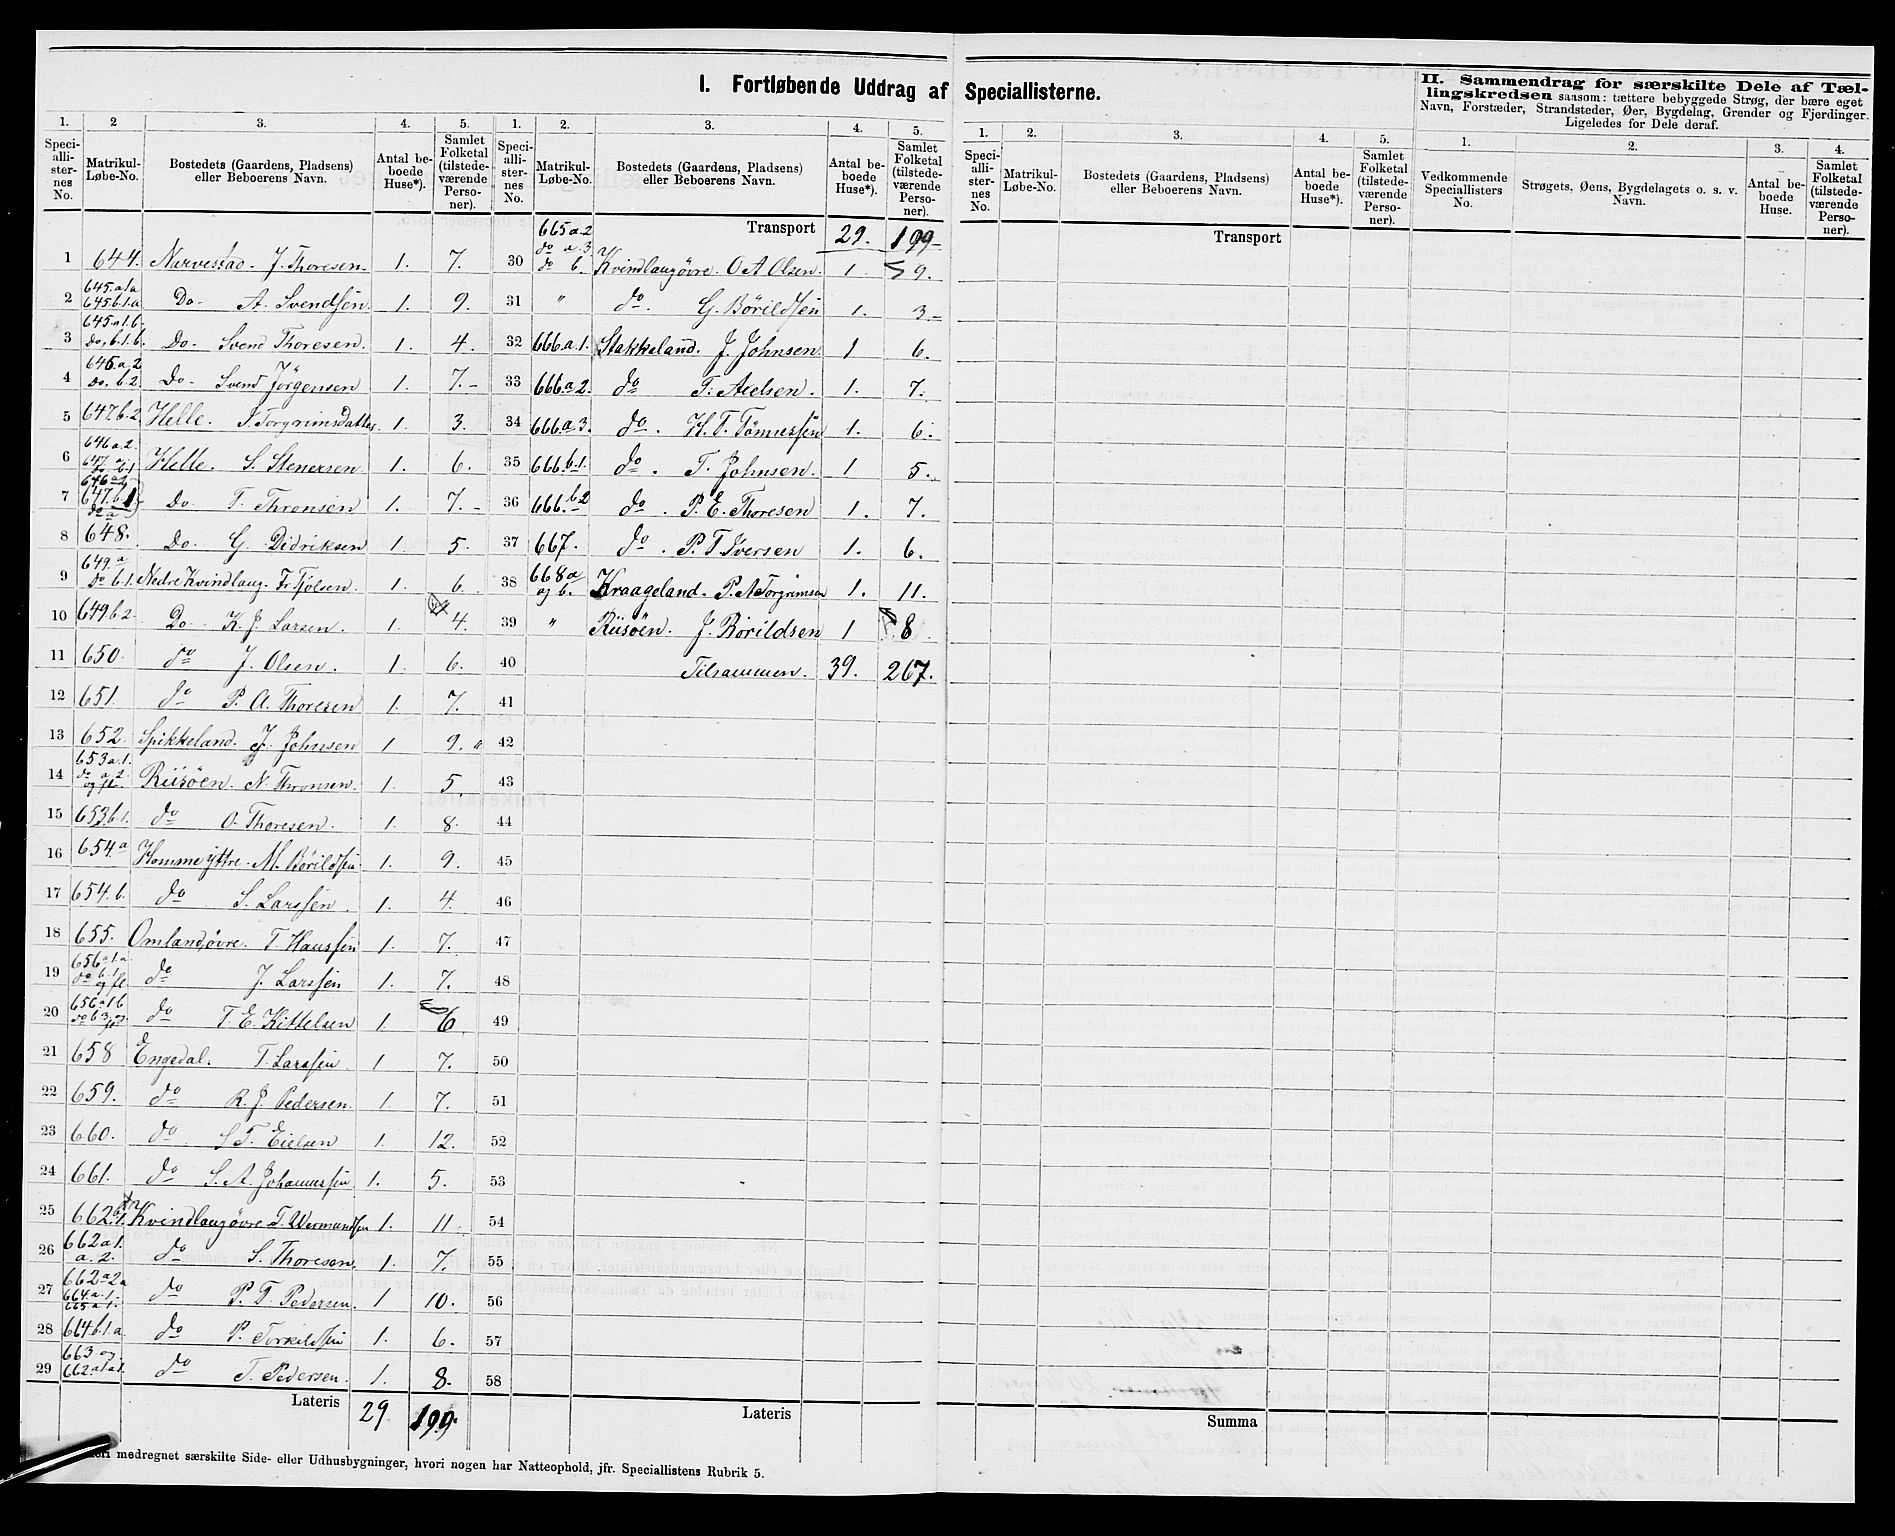 I. Fortløbende Uddrag af Speciallisterne.
II. Sammendrag for særskilte Dele af Tællingskredsen saasom: tættere bebyggede Strøg, der bære eget
Navn, Forstæder, Strandsteder, Øer, Bygdelag, Grender og Fjerdinger.
Ligeledes for Dele deraf.
1. 2 3. 4. 5.
Specialli-sternes No. Matrikul-Løbe-No. Bostedets (Gaardens, Pladsens) eller Beboerens Navn. Antal beboede Huse*). Samlet Folketal (tilstedeværende Personer).
1 644. Narvestad. J. Thoresen. 1. 7.
2 645.a.1a 645.b.1.a Do. A. Svendsen. 1. 9.
3 645.a.1.b. Do. b.1.b. Do. Svend Thoresen. 1. 4.
4 645.a.2 Do. b.2. Do. Svend Jörgensen 1. 7.
5 647.b.2 Helle. Torgrimsdatter. 1. 3.
6 646 a.2. Helle. S. Stenersen 1. 6.
7 647.b.1 Do T. Thronsen 1. 7.
8 648. Do. G. Didriksen 1. 5.
9 649.a Do b.1. Nedre Kvindlaug. F. Tjölsen. 1. 6.
10 649b2. Do. K. J. Larsen. 1. 4.
11 650. do J. Olsen. 1. 6.
12 651. do P. A. Thoresen 1. 7.
13 652. Spikkeland. J. Johnsen 1 9.
14 653a.1. do a.2. og fl. Riisöen. N. Thronsen. 1. 5.
15 653.b.1. do O. Thoresen. 1. 8.
16 654.a Homme ÿttre. M. Börildsen. 1. 9.
17 654.b. do S. Larssen. 1. 4.
18 655. Omland, övre. T. Hanssen 1. 7.
19 656 a.1.a. do b.1 og fl. do J. Larssen 1. 7.
20 656a1b do T. E. Kittelsen 1. 6
21 658 Engedal. T. Larssen 1 7.
22 659. do R. J. Pedersen. 1. 7.
23 660. do S T. Eielsen 1. 12.
24 661. do S. A. Johannessen 1. 5.
25 662. Kvindlaug övre T. Wermundsen 1. 11.
26 662a1. a.2. do S. Thoresen. 1. 7.
27 662a2a 664.a.1. 665a1. do P. T. Pedersen. 1 10.
28 664.b.1.a. do P. Torkildsen 1. 6.
29 663 og 662.a1a1. do T. Pedersen. 1. 8.
Lateris 29. 199.
1. 2. 3. 4. 5.
Specialli-sternes No. Matrikul-Løbe-No. Bostedets (Gaardens, Pladsens) eller Beboerens Navn. Antal beboede Huse*). Samlet Folketal (tilstedeværende Personer).
Transport 29. 199
30 665a.2 do a.3 do b. Kvindlaug övre. O A Olsen. 1. 9.
31 " do. G. Börildsen 1. 3.
32 666.a.1. Stakkeland. J. Johnsen. 1 6.
33 666.a2. do T. Axelsen. 1. 7.
34 666.a3. do. H. T. Tönnessen 1. 6.
35 666.b.1. do. T. Johnsen. 1 5.
36 666.b2 do. P. E. Thoresen 1. 7.
37 667. do. P. T. Iversen 1. 6.
38 668a og b. Kraageland. P. A Torgrimsen 1. 11.
39 " Riisöen. J. Börildsen 1 8
40 Tilsammen. 39. 267.
41
42
43
44
45
46
47
48
49
50
51
52
53
54
55
56
57
58
Lateris
1. 2. 3. 4. 5.
Specialli-sternes No. Matrikul-Løbe-No. Bostedets (Gaardens, Pladsens) eller Beboerens Navn. Antal beboede Huse*). Samlet Folketal (tilstedeværende Personer).
Transport
Summa
1. 2. 3. 4.
Vedkommende Speciallisters No. Strøgets, Øens, Bygdelagets o. s. v. Navn. Antal beboede Huse. Samlet Folketal (tilstedeværende Personer).
medregnet særskilte Side- eller Udhusbygninger, hvori nogen har Natteophold, jfr. Speciallistens Rubrik 5.